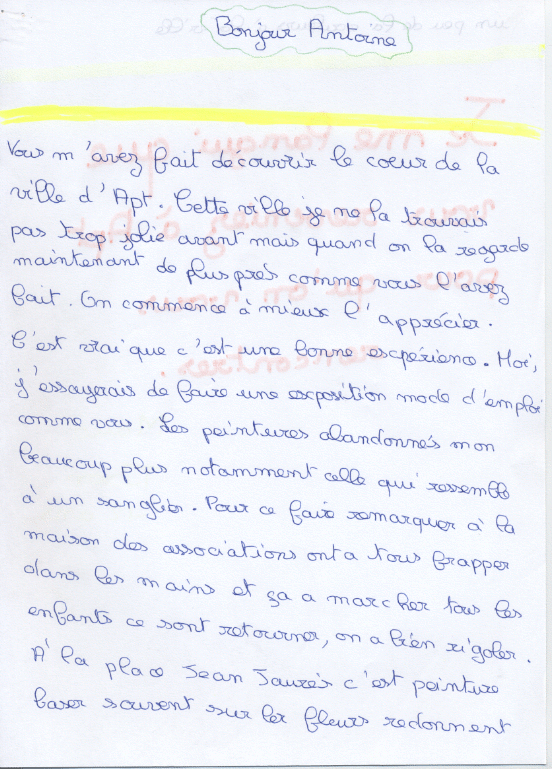 Bonjour Antoine
Vous m'avez fait découvrir le coeur de la
ville d'Apt. Cette ville je ne la trouvais
pas trop jolie avant mais quand on la regarde
maintenant de plus près comme vous l'avez
fait. On commence à mieux l'apprécier.
C'est vrai que c'est une bonne escpérience. Moi,
j'essayerais de faire une esxposition mode d'emploi
comme vous. Les peintures abandonnés mon
beaucoup plus notamment celle qui ressemble
à un sanglier. Pour ce faire remarquer à la
maison des associations ont a tous frapper
dans les mains et ça a marcher tous les
enfants ce sont retourner, on a bien rigoler.
A la place Jean Jaurès c'est peinture
baser souvent sur les fleurs redonnent